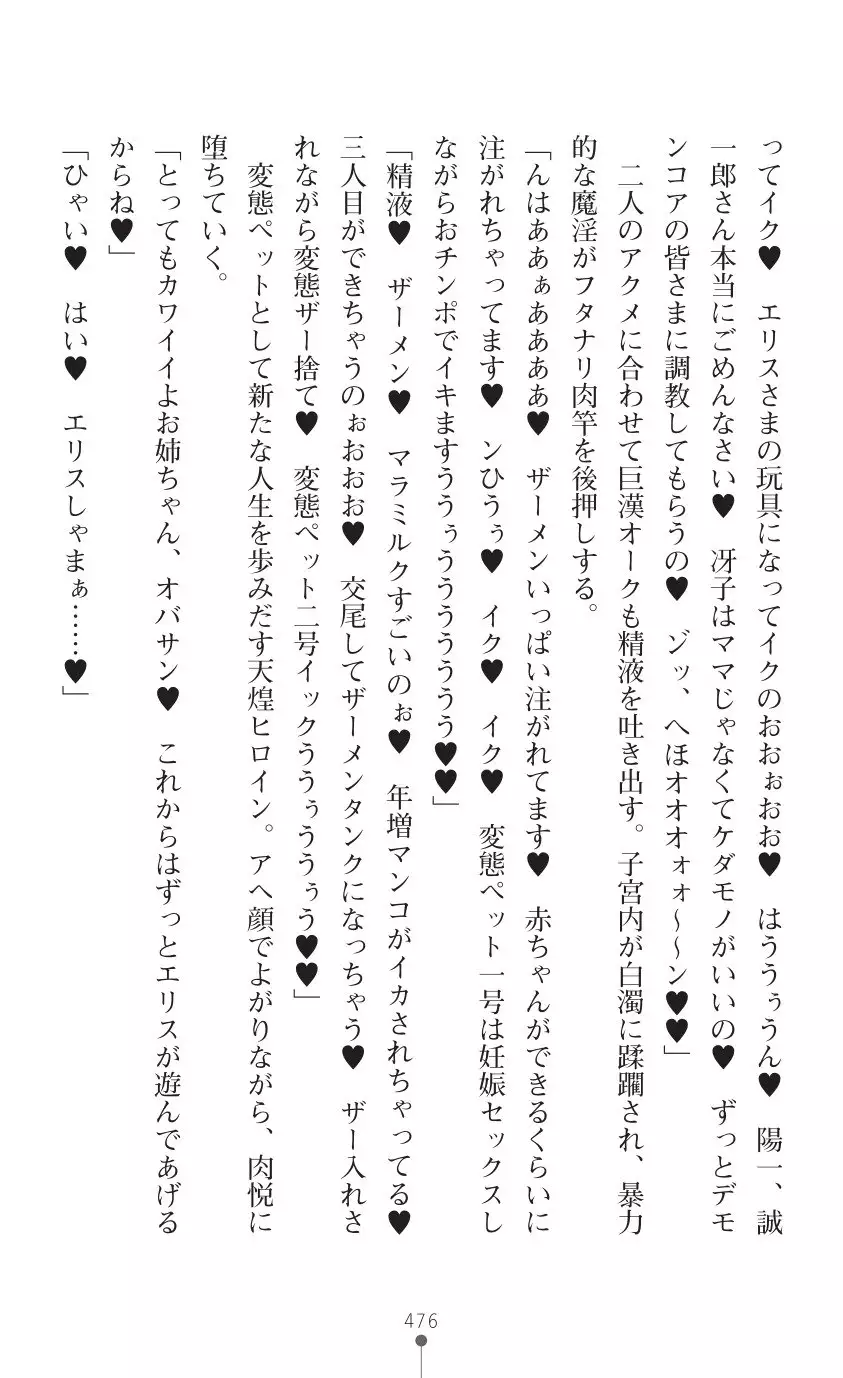 ってイク♥　エリスさまの玩具になってイクのおおぉおお♥　はううぅうん♥　陽一、誠
一郎さん本当にごめんなさい♥　冴子はママじゃなくてケダモノがいいの♥　ずっとデモ
ンコアの皆さまに調教してもらうの♥　ゾッ、へほオオオォォ～～ン♥♥」
　二人のアクメに合わせて巨漢オークも精液を吐き出す。子宮内が白濁に蹂躙され、暴力
的な魔淫がフタナリ肉竿を後押しする。
「んはああぁああああ♥　ザーメンいっぱい注がれてます♥　赤ちゃんができるくらいに
注がれちゃってます♥　ンひうぅ♥　イク♥　イク♥　変態ペット一号は妊娠セックスし
ながらおチンポでイキますううぅううううううう♥♥」
「精液♥　ザーメン♥　マラミルクすごいのぉ♥　年増マンコがイカされちゃってる♥
三人目ができちゃうのぉおおお♥　交尾してザーメンタンクになっちゃう♥　ザー入れさ
れながら変態ザー捨て♥　変態ペット二号イックううぅううぅう♥♥」
　変態ペットとして新たな人生を歩みだす天煌ヒロイン。アヘ顔でよがりながら、肉悦に
堕ちていく。
「とってもカワイイよお姉ちゃん、オバサン♥　これからはずっとエリスが遊んであげる
からね♥」
「ひゃい♥　はい♥　エリスしゃまぁ……♥」
476